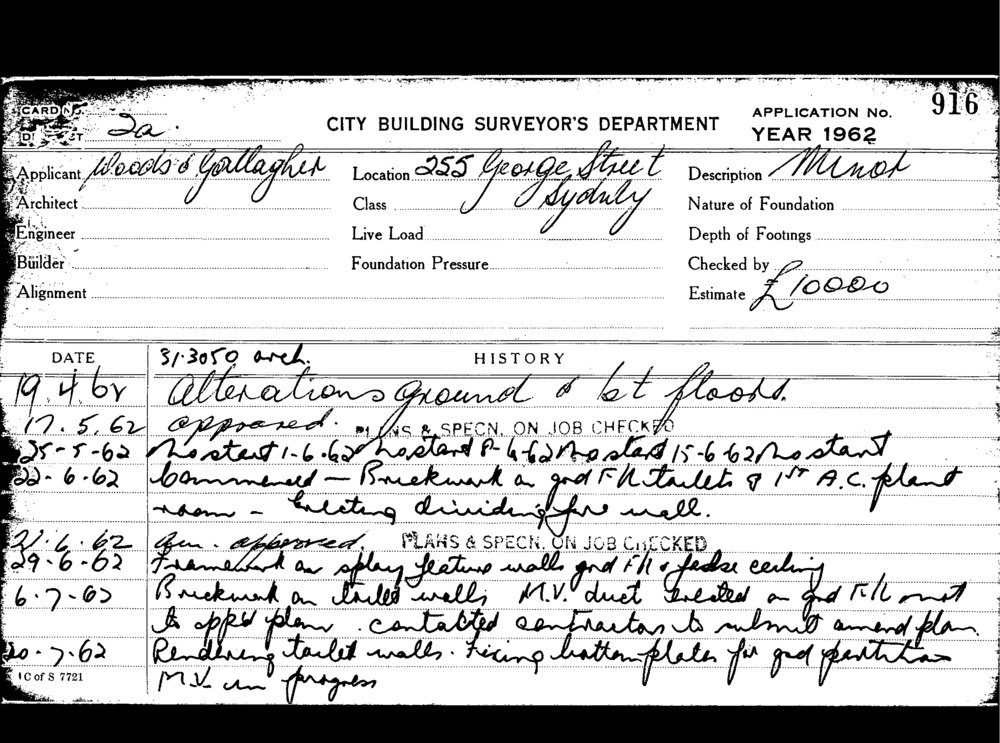 CARD NO.
2a.
CITY BUILDING SURVEYOR'S DEPARTMENT
APPLICATION No. 916
YEAR 1962
Applicant Woods & Gallagher Location 255 George Street Description Minor
Architect Class Sydney Nature of Foundation
Engineer Live Load Depth of Footings
Builder Foundation Pressure Checked by
Alignment Estimate £10000
DATE 31·3050 arch. HISTORY
19.4.62 Alterations ground & 1st floors.
17.5.62 approved. PLANS & SPECN. ON JOB CHECKED
25-5-62 No start 1-6-62 No start 8-6-62 No start 15-6-62 No start
22-6-62 Commenced — Brickwork on grd F/L toilets & 1ST A.C. plant
room - Erecting dividing fire wall.
21.6.62 Am. approved. PLANS & SPECN. ON JOB CHECKED
29-6-62 Framework on splay feature walls grd F/L & false ceiling
6-7-62 Brickwork on toilet walls M.V. duct erected on grd F/L not
to appd plan. contacted contractors to submit amend plan.
20-7-62 Rendering toilet walls. Fixing bottom plates for grd partitions
M.V. in progress
C of S 7721